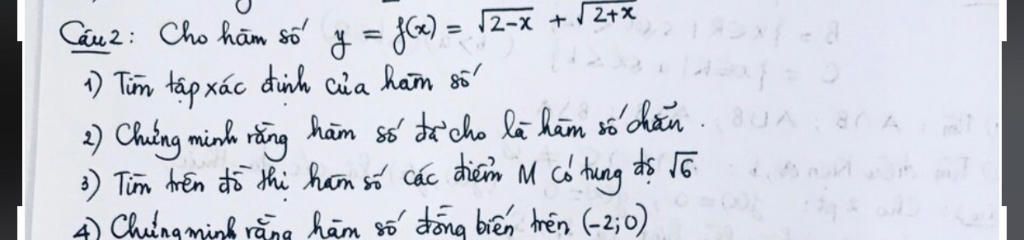 Câu 2: Cho hàm số y = f(x) = √2-x + √2+x
1) Tìm tập xác định của hàm số
2) Chứng minh rằng hàm số đã cho là hàm số chẵn.
3) Tìm trên đồ thị hàm số các điểm M có tung độ √6.
4) Chứng minh rằng hàm số đồng biến trên (-2; 0)